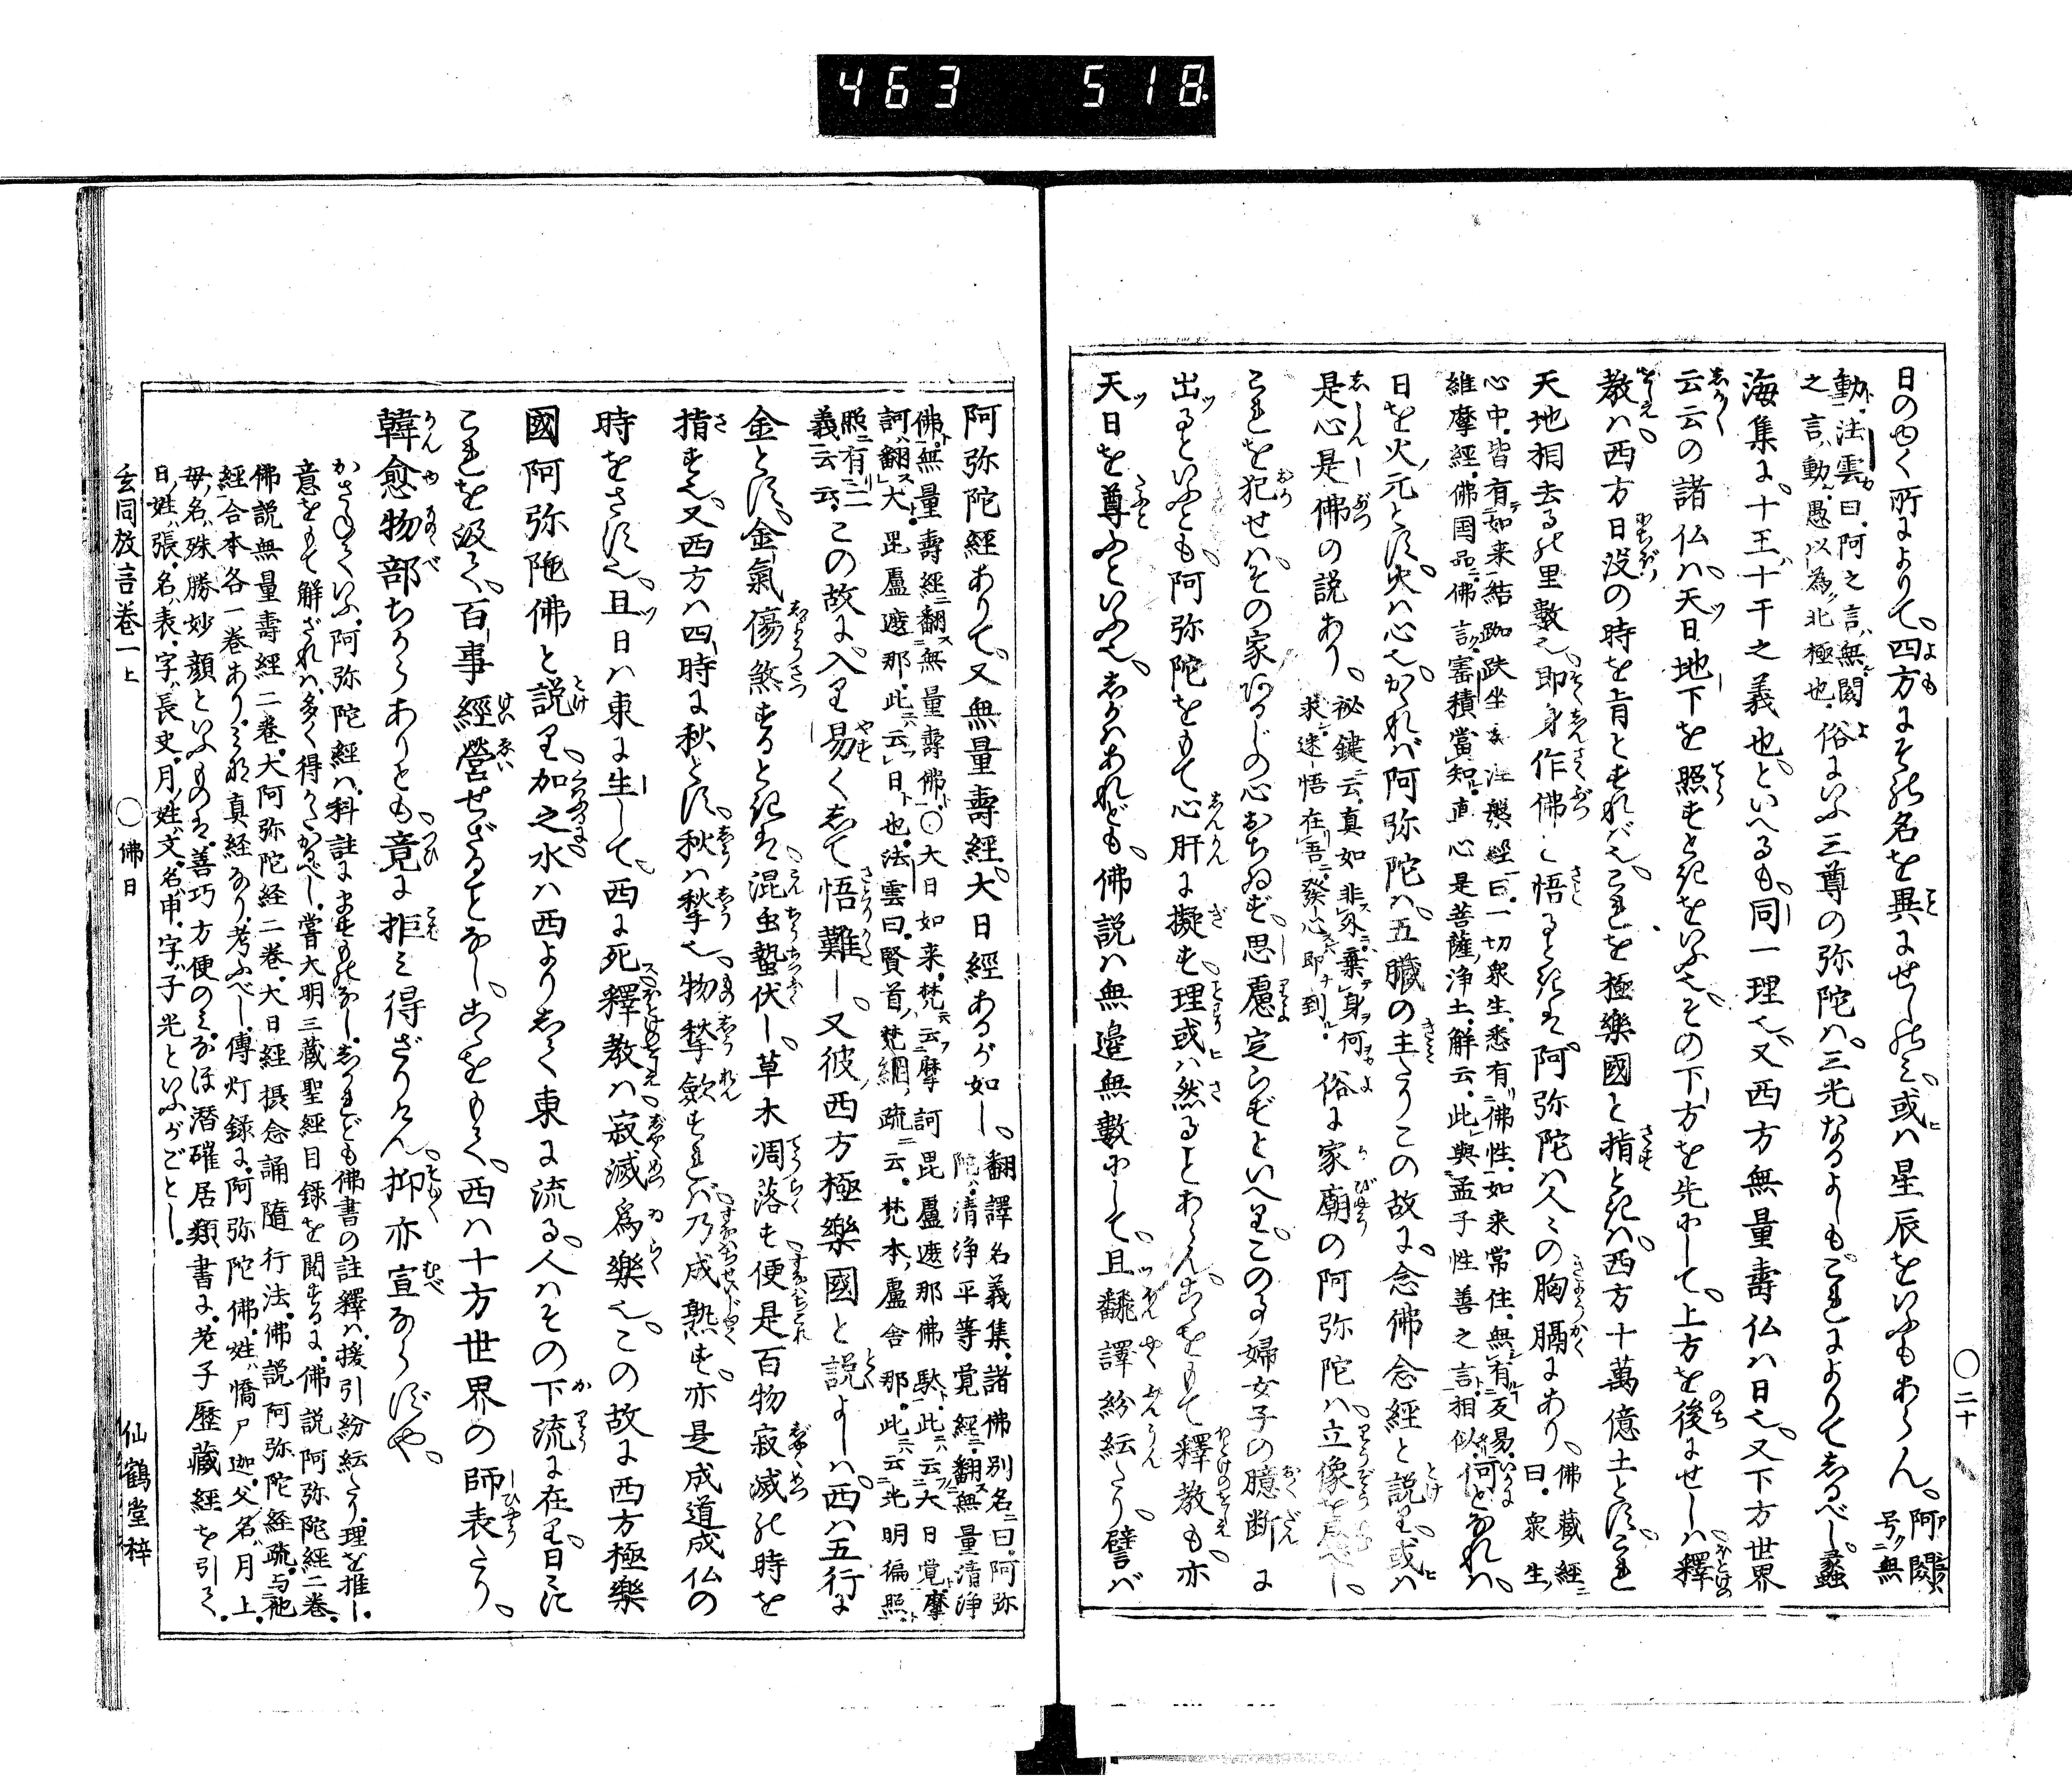 463 518
日のゆく所によりて、四方にその名を異にせしのみ、或は星辰をいふもあらん、阿閦
号無
動、法雲曰、阿之言、無、閦
之言、動、愚以為、北極也、俗にいふ三尊の弥陀は、三光なるよしもこれによりてしるべし、蠡
海集に、十王、十干之義也、といへるも、同一理也、又西方無量壽仏は日也、又下方世界
云云の諸仏は、天日地下を照すときをいふ也、その下方を先にして、上方を後にせしは、釋
教は、西方日没の時を旨とすればなり、これを極樂國と指ときは、西方十萬億土とす、これ
天地相去るの里數也、即身作佛と悟るときは、阿弥陀は人々の胸膈にあり、佛藏經
曰、衆生
心中、皆有如来結跏趺坐、涅槃經曰、一切衆生、悉有佛性、如来常住、無有変易、
維摩經、佛国品、佛言、寳積當知、直心是菩薩、浄土、解云、此與孟子性善之言相似、何となれば、
日を火元とす、火は心也、かゝれば阿弥陀は、五臓の主たりこの故に、念佛念經と説り、或は
是心是佛の説あり、祕鍵云、真如非外、棄身何
求、迷悟在吾、發心即到、俗に家廟の阿弥陀は、立像を忌べし、
これを犯せば、その家あるじの心おちゐず、思慮定らずといへり、この事婦女子の臆断に
出るといふとも、阿弥陀をもて心肝に擬す、理或は然ることあらん、これをもて釋教も、亦
天日を尊ふといふ也、しかはあれども、佛説は無邉無數にして、且飜譯紛紜たり、譬ば
二十
阿弥陀經ありて、又無量壽經、大日經あるが如し、翻譯名義集、諸佛別名曰、阿弥
陀、清浄平等覚經、翻無量清浄
佛、無量壽經、翻無量壽佛、○大日如来、梵云摩訶毘盧遮那佛、此云大日覚、摩
訶、翻大、毘盧遮那、此云日也、法雲曰、賢首、梵網、疏云、梵本、盧舍那、此云光明徧照、
照有二
義云云、この故に、入り易くして悟難し、又彼西方極樂國と説よしは、西は五行に
金とす、金氣傷煞すときは、混虫蟄伏し、草木凋落す、便是百物寂滅の時を
指す也、又西方は四時に秋とす、秋は揫也、物揫歛すれば、乃成熟す、亦是成道成仏の
時をさす也、且日は東に生して、西に死、釋教は寂滅爲樂也、この故に西方極樂
國阿弥陀佛と説り、加之水は西よりして東に流る、人はその下流に在り、日々に
これを汲て、百事經營せざることなし、こゝをもて、西は十方世界の師表たり、
韓愈物部ちからありとも、竟に拒み得ざりけん、抑亦宜ならずや、
かさねていふ、阿弥陀經は、科註にますものなし、しかれども佛書の註釋は、援引紛紜たり、理を推し
意をもて解ざれは、多く得かたかるべし、嘗大明三藏聖經目録を閲するに、佛説阿弥陀經二巻、
佛説無量壽經二巻、大阿弥陀経二巻、大日經摂念誦隨行法、佛説阿弥陀經疏、与他
經合本各一巻あり、みな真経なり、考ふべし、傳灯録に、阿弥陀佛、姓憍尸迦、父名月上、
母名殊勝妙顔といふものは、善巧方便のみ、なほ潜確居類書に、老子歴藏經を引て、
日、姓張、名表、字長史、月姓文、名申、字子光といふがごとし、
玄同放言巻一上 ○佛日 仙鶴堂梓